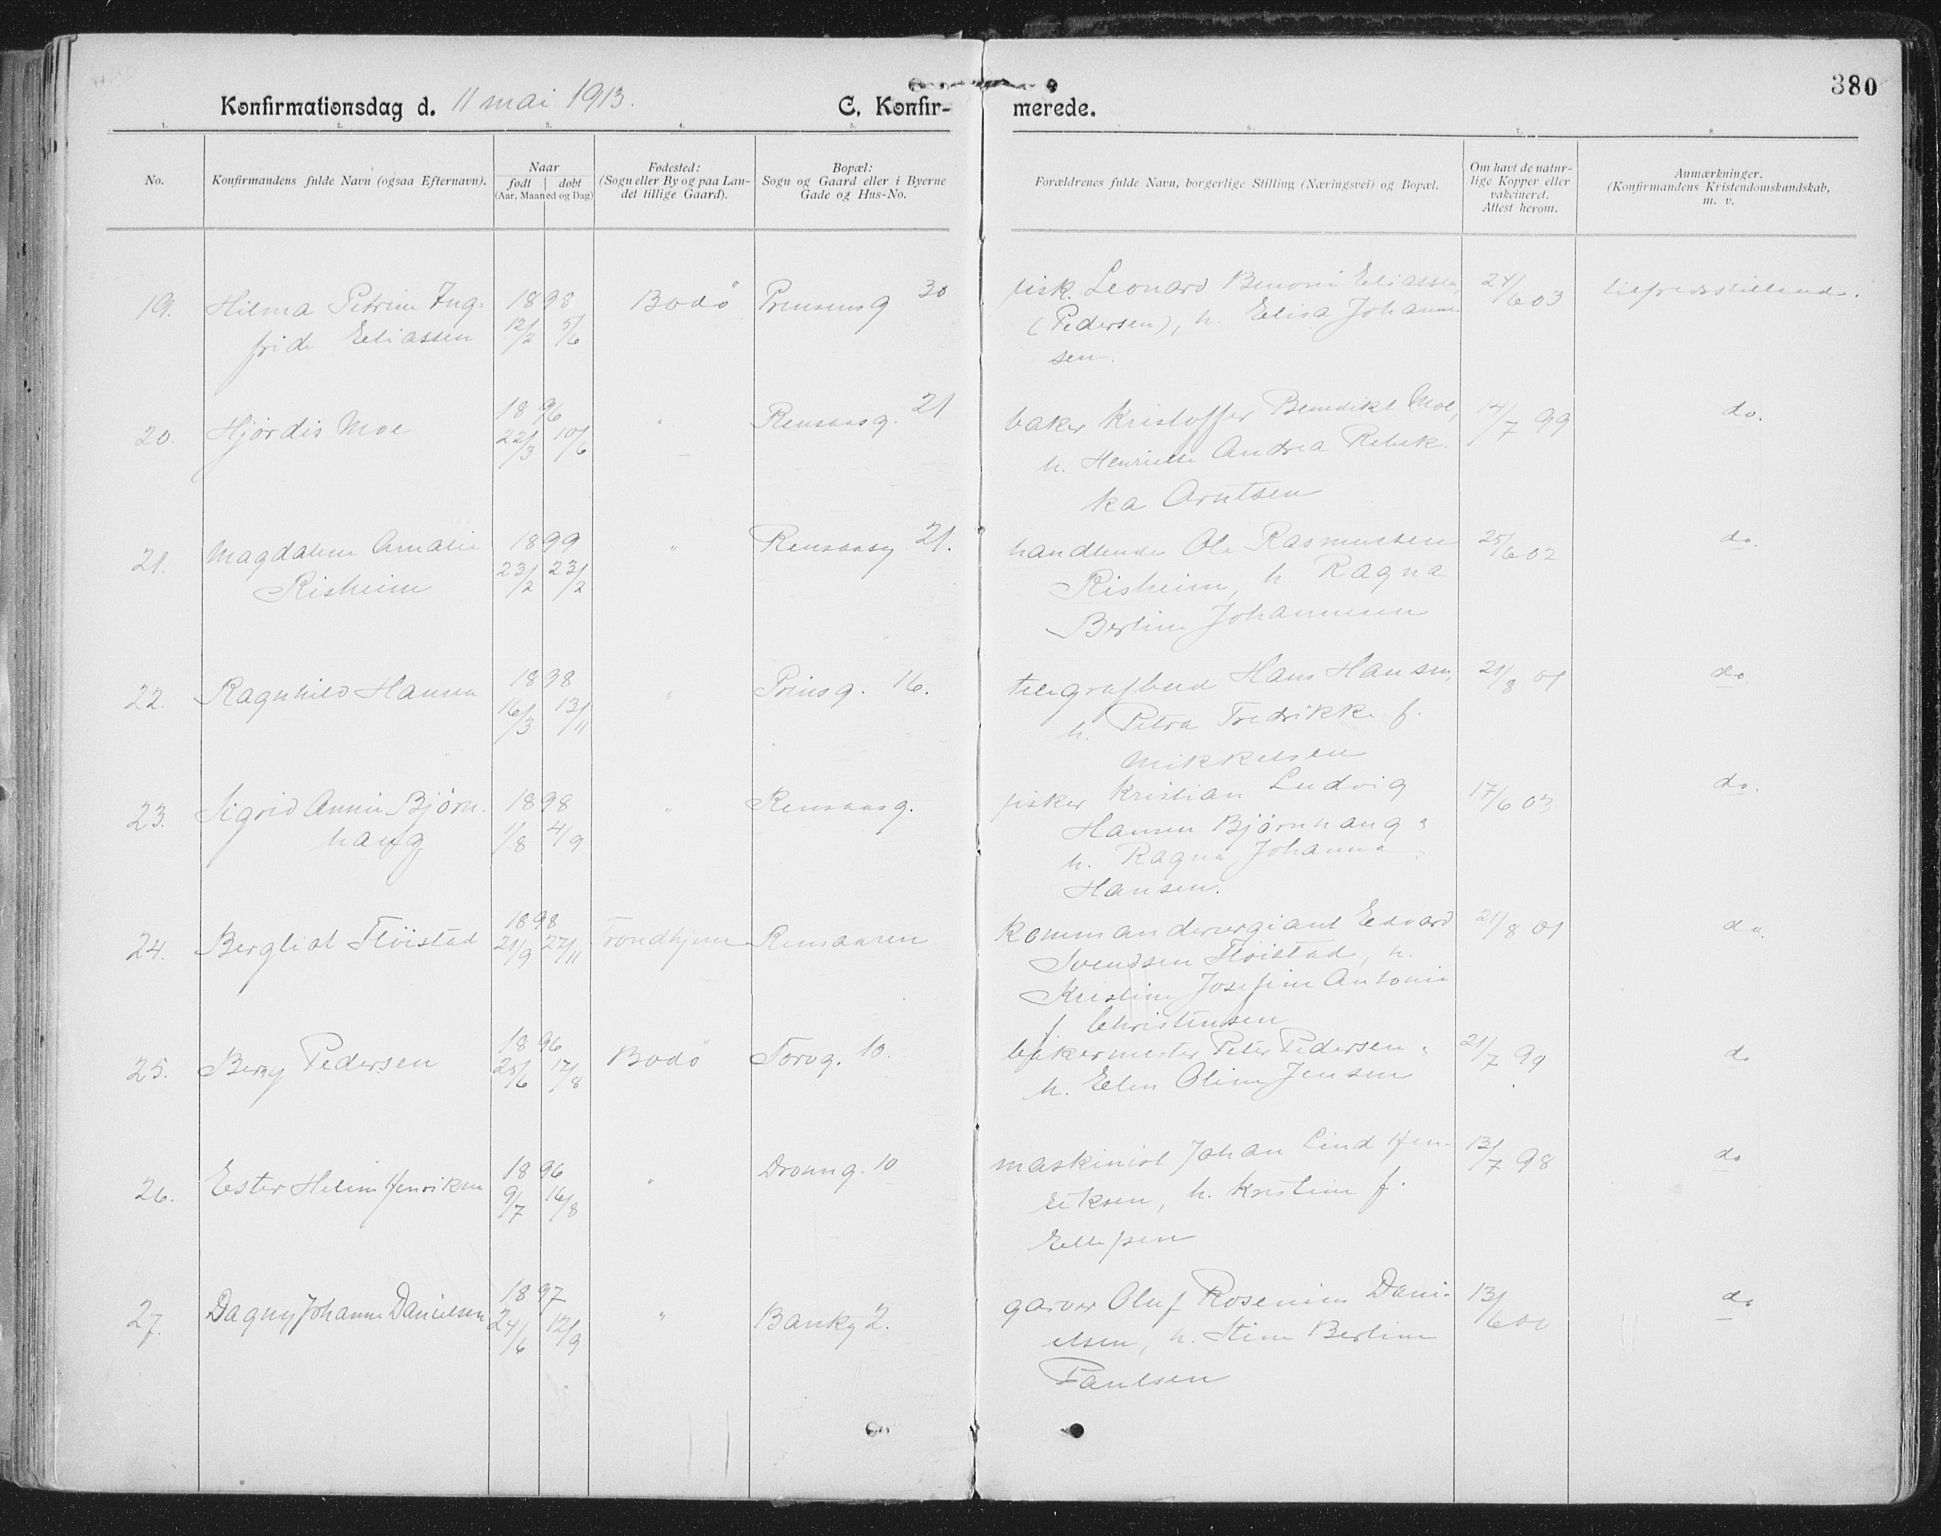 380
Konfirmationsdag d. 11 mai 1913. C. Konfir- merede.
1. 2. 3. 4. 5. 6. 7. 8
No. Konfirmandens fulde Navn (ogsaa Efternavn). Naar født døbt (Aar, Maaned og Dag) Fødested: (Sogn eller By og paa Lan- det tillige Gaard). Bopæl: Sogn og Gaard eller i Byerne Gade og Hus-No. Forældrenes fulde Navn, borgerlige Stilling (Næringsvei) og Bopæl. Om havt de natur- lige Kopper eller vakcineret. Attest herom. Anmærkninger. (Konfirmandens Kristendomskundskab, m. v.
19. Hilma Petrine Ing- 1898 Bodö Prinsensg 30 fisk. Leonard Benoni Eliassen, 24/6 03 tilfredsstillende.
fride Eliassen 12/2 5/6 (Pedersen), h. Elisa Johanne
sen.
20. Hjørdis Moe 1896 " Rensaasg. 21 baker Kristoffer Benedikt Moe, 14/7 99 do.
22/3 10/6 h. Henriette Andrea Rebek
ka Arntsen
21. Magdalene Amalie 1899 " Rensaasg 21. handlende Ole Rasmussen 25/6 02 do.
Risheim 23/2 23/2 Risheim, h. Ragna
Berline Johannesen
22. Ragnhild Hansen 1898 " Prinsg. 16. telegrafbud Hans Hansen, 21/8 01 do.
16/3 13/11 h. Petra Fredrikke f.
Mikkelsen
23. Sigrid Annie Bjørn- 1898 " Rensaasg. fisker Kristian Ludvig 17/6 03 do.
haug 1/8 4/9 Hansen Bjørnhaug,
h. Ragna Johanna
Hansen.
24. Bergliot Flöistad 1898 Trondhjem Rensaasen kommandersergiant Edvard 21/8 01 do.
21/9 27/11 Svendsen Flöistad, h.
Kristine Josefine Antonie
f. Christensen
25. Berny Pedersen 1896 Bodö Torvg. 10. bakermester Peter Pedersen, 21/7 99 do
25/6 17/8 h. Elen Oline Jensen
26. Ester Helene Henriksen 1896 " Dronng. 10 maskinist Johan Lind Hen- 13/7 98 do
9/7 16/8 riksen, h. Kristine f.
Ellefsen
27. Dagny Johanne Danielsen 1897 " Bankg 2. garver Oluf Rosenius Dani- 13/6 do
24/6 12/9 elsen, h. Stine Berline
Paulsen